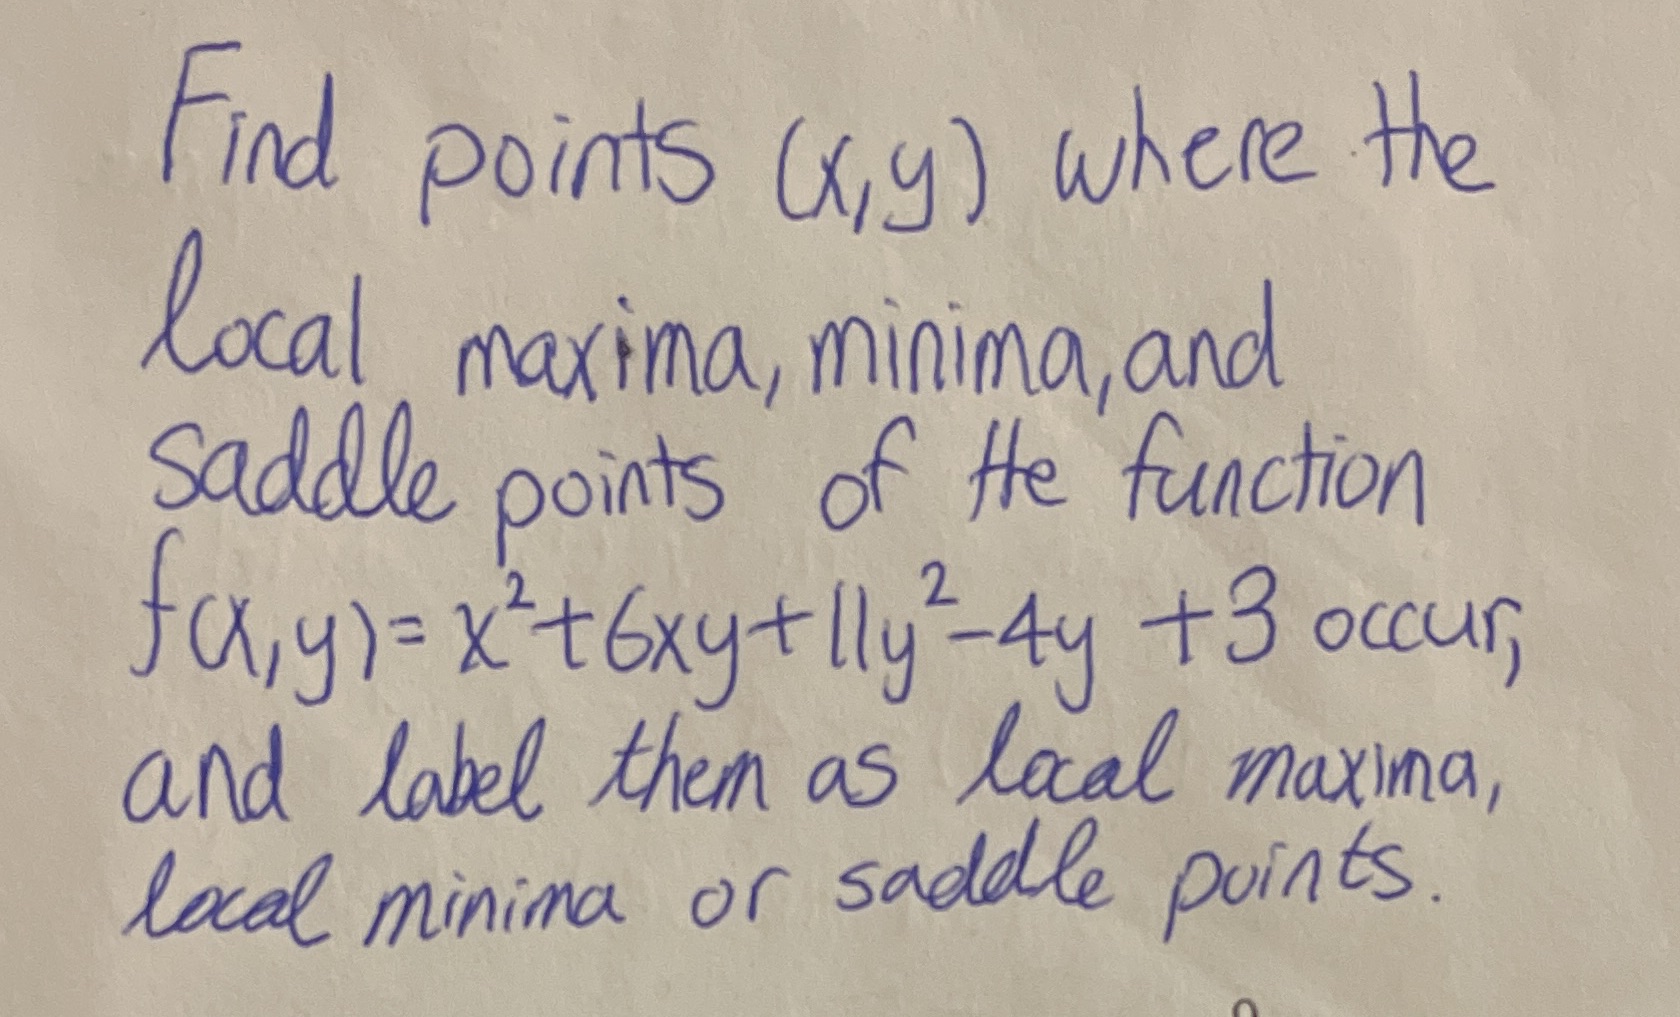 Find points (x,y) where the
local maxima, minima, and
saddle points of the function
f(x,y) = x²+6xy+11y²-4y +3 occur,
and label them as local maxima,
local minima or saddle points.